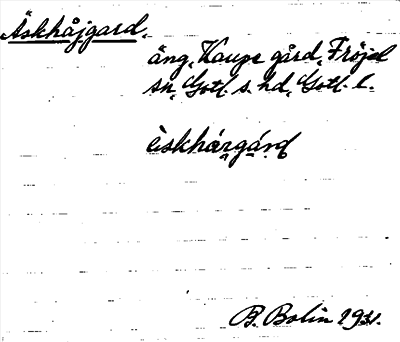 Äskhåjgard,
äng, Kaupe gård, Fröjel
sn, Gotl. s. hd, Gotl. l.
èskhárgárd
B. Bolin 1931.